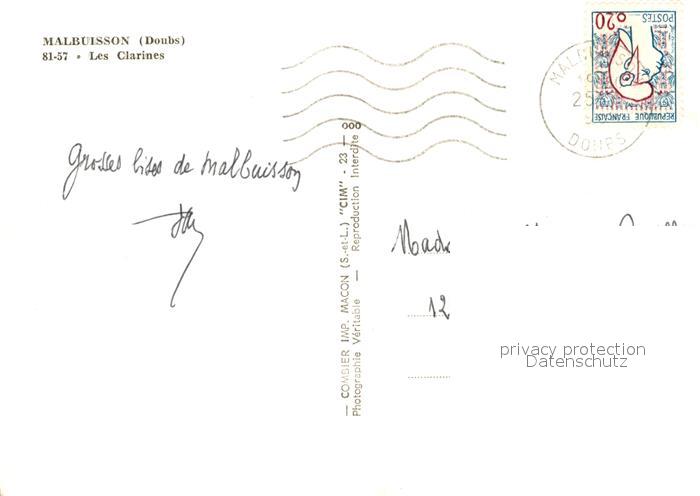 MALBUISSON (Doubs)
81-57 - Les Clarines
Grosses bises de Malbuisson
— COMBIER IMP. MACON (S.-et-L.) "CIM" - 23 — 000
Photographie Véritable — Reproduction Interdite
0,20 POSTES
REPUBLIQUE FRANÇAISE
25
DOUBS
12
privacy protection
Datenschutz